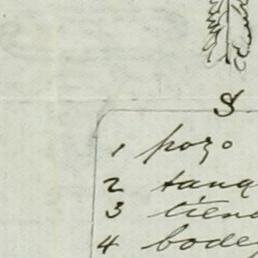 S
1 pozo
2 tanq
3 tiend
4 bode